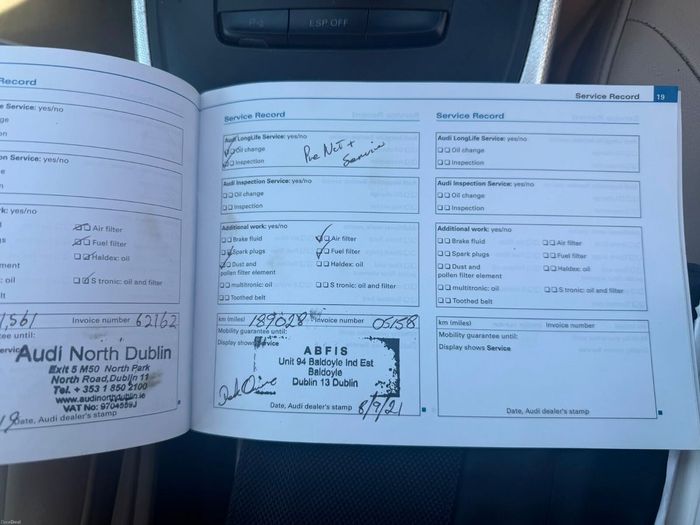 P
ESP OFF
Record
e Service: yes/no
on Service: yes/no
rk: yes/no
Air filter
Fuel filter
Haldex: oil
ment
: oil
S tronic: oil and filter
lt
,561 Invoice number 62162
tee until:
Audi North Dublin
Exit 5 M50 North Park
North Road, Dublin 11
Tel. + 353 1 850 2100
www.audinorthdublin.ie
VAT No: 9704559J
Date, Audi dealer's stamp
Service Record
Audi LongLife Service: yes/no
Oil change
Inspection
Pre Nct +
Service
Audi Inspection Service: yes/no
Oil change
Inspection
Additional work: yes/no
Brake fluid Air filter
Spark plugs Fuel filter
Dust and Haldex: oil
pollen filter element
multitronic: oil S tronic: oil and filter
Toothed belt
km (miles) 189028 Invoice number 05158
Mobility guarantee until:
Display shows Service
ABFIS
Unit 94 Baldoyle Ind Est
Baldoyle
Dublin 13 Dublin
Date, Audi dealer's stamp 8/9/21
Service Record 19
Service Record
Audi LongLife Service: yes/no
Oil change
Inspection
Audi Inspection Service: yes/no
Oil change
Inspection
Additional work: yes/no
Brake fluid Air filter
Spark plugs Fuel filter
Dust and Haldex: oil
pollen filter element
multitronic: oil S tronic: oil and filter
Toothed belt
km (miles) Invoice number
Mobility guarantee until:
Display shows Service
Date, Audi dealer's stamp